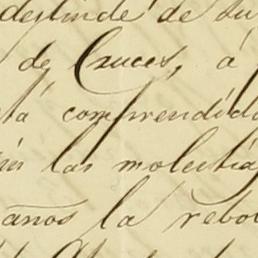 deslinde de su
de Cruces, á
tá comprendido
las molestia
anos la rebo